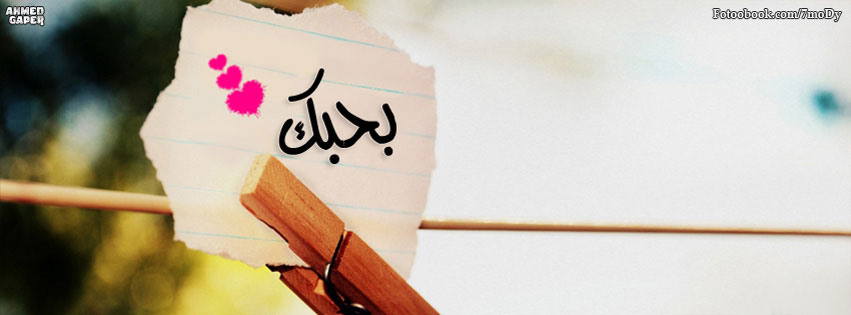 AHMED
GABER
Fotoobook.com/7moDy
بحبك